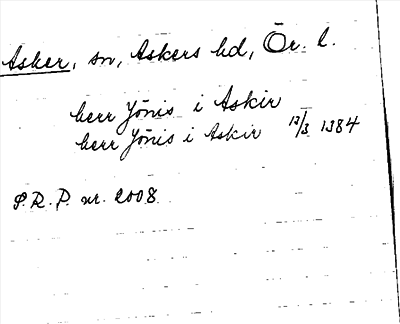 Asker, sn, Askers hd, Ör. l.
herr Jönis i Askir
herr Jönis i Askir 13/3 1384
P.R.P. nr. 2008.